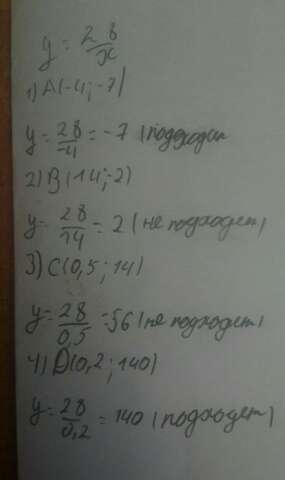 y = 28/x
1) A(-4; -7)
y = 28/-4 = -7 (подходит
2) B(14; -2)
y = 28/14 = 2 (не подходит)
3) C(0,5; 14)
y = 28/0,5 = 56 (не подходит)
4) D(0,2; 140)
y = 28/0,2 = 140 (подходит)